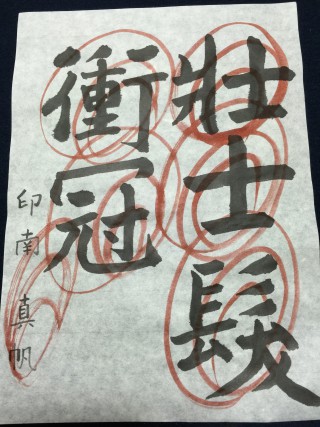 壯士髮
衝冠
印南真帆